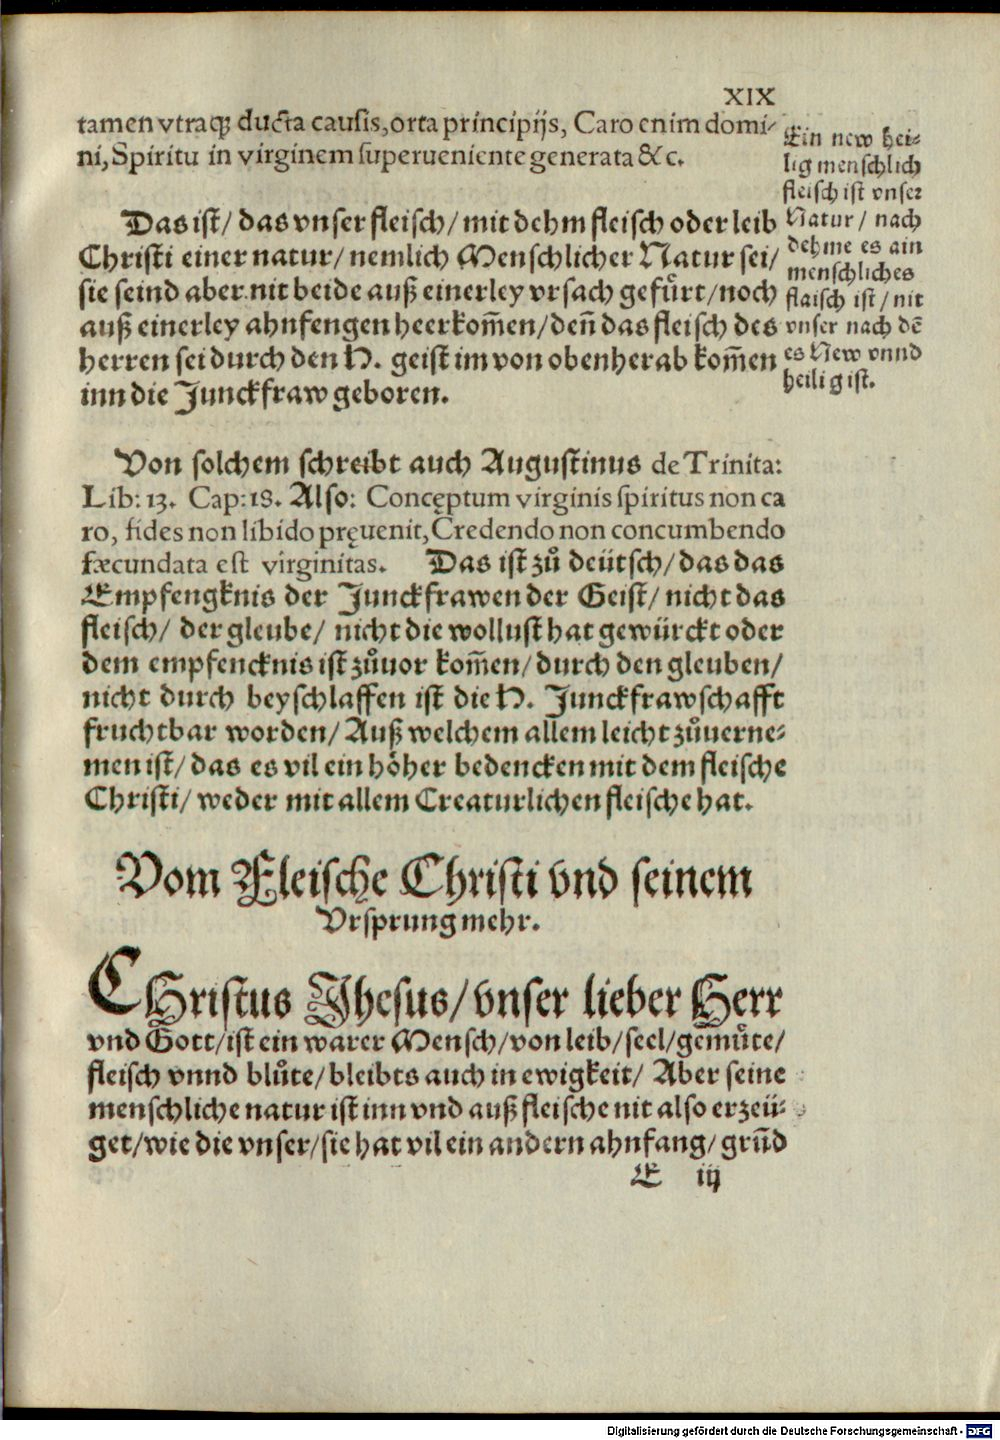 XIX
tamen vtraqꝫ ducta causis, orta principijs, Caro enim domi-
ni, Spiritu in virginem superueniente generata &c.
Ein new hei-
lig menschlich
fleisch ist vnser
Natur / nach
dehme es ain
menschliches
flaisch ist / nit
vnser nach dē
es New vnnd
heilig ist.
Das ist / das vnser fleisch / mit dehm fleisch oder leib
Christi einer natur / nemlich Menschlicher Natur sei /
sie seind aber nit beide auß einerley vrsach gefuͤrt / noch
auß einerley ahnfengen heerkom̄en / den̄ das fleisch des
herren sei durch den H. geist im von obenherab kom̄en
inn die Junckfraw geboren.
Von solchem schreibt auch Augustinus de Trinita:
Lib: 13. Cap: 18. Also: Concęptum virginis spiritus non ca
ro, fides non libido pręuenit, Credendo non concumbendo
fæcundata est virginitas. Das ist zů deütsch / das das
Empfengknis der Junckfrawen der Geist / nicht das
fleisch / der gleube / nicht die wollust hat gewürckt oder
dem empfencknis ist zůuor kom̄en / durch den gleuben /
nicht durch beyschlaffen ist die H. Junckfrawschafft
fruchtbar worden / Auß welchem allem leicht zůuerne-
men ist / das es vil ein hoͤher bedencken mit dem fleische
Christi / weder mit allem Creaturlichen fleische hat.
Vom Fleische Christi vnd seinem
Vrsprung mehr.
CHristus Jhesus / vnser lieber Herr
vnd Gott / ist ein warer Mensch / von leib / seel / gemuͤte /
fleisch vnnd bluͤte / bleibts auch in ewigkeit / Aber seine
menschliche natur ist inn vnd auß fleische nit also erzeü-
get / wie die vnser / sie hat vil ein andern ahnfang / grūd
E iij
Digitalisierung gefördert durch die Deutsche Forschungsgemeinschaft - DFG